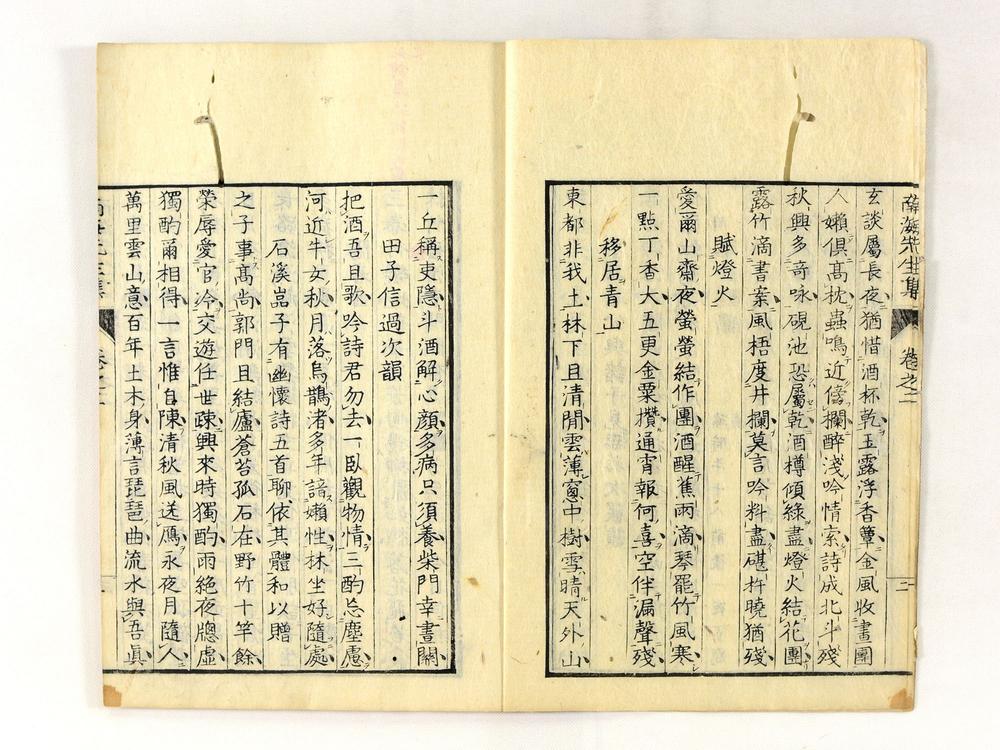 南海先生集
卷之二
二
玄談屬長夜猶惜酒杯乾玉露浮香簟金風收畫團
人嬾俱髙枕蟲鳴近傍攔醉淺吟情索詩成北斗殘
秋興多奇咏硯池恐屬乾酒樽傾綠盡燈火結花團
露竹滴書案風梧度井攔莫言吟料盡碪杵曉猶殘
賦燈火
愛爾山齋夜螢螢結作團酒醒蕉雨滴琴罷竹風寒
一點丁香大五更金粟攢通宵報何喜空伴漏聲殘
移居青山
東都非我土林下且清閒雲薄窓中樹雪晴天外山
一丘稱吏隱斗酒解心顏多病只須養柴門幸晝關
田子信過次韻
把酒吾且歌吟詩君勿去一臥觀物情三酌忘塵慮
河近牛女秋月落烏鵲渚多年諳嬾性牀坐好隨處
石溪嵓子有幽懷詩五首聊依其體和以贈
之子事髙尚郭門且結廬蒼苔孤石在野竹十竿餘
榮辱愛官冷交遊任世疎興來時獨酌雨絕夜牕虛
獨酌爾相得一言惟自陳清秋風送鴈永夜月隨人
萬里雲山意百年土木身薄言琵琶曲流水與吾眞
南海先生集